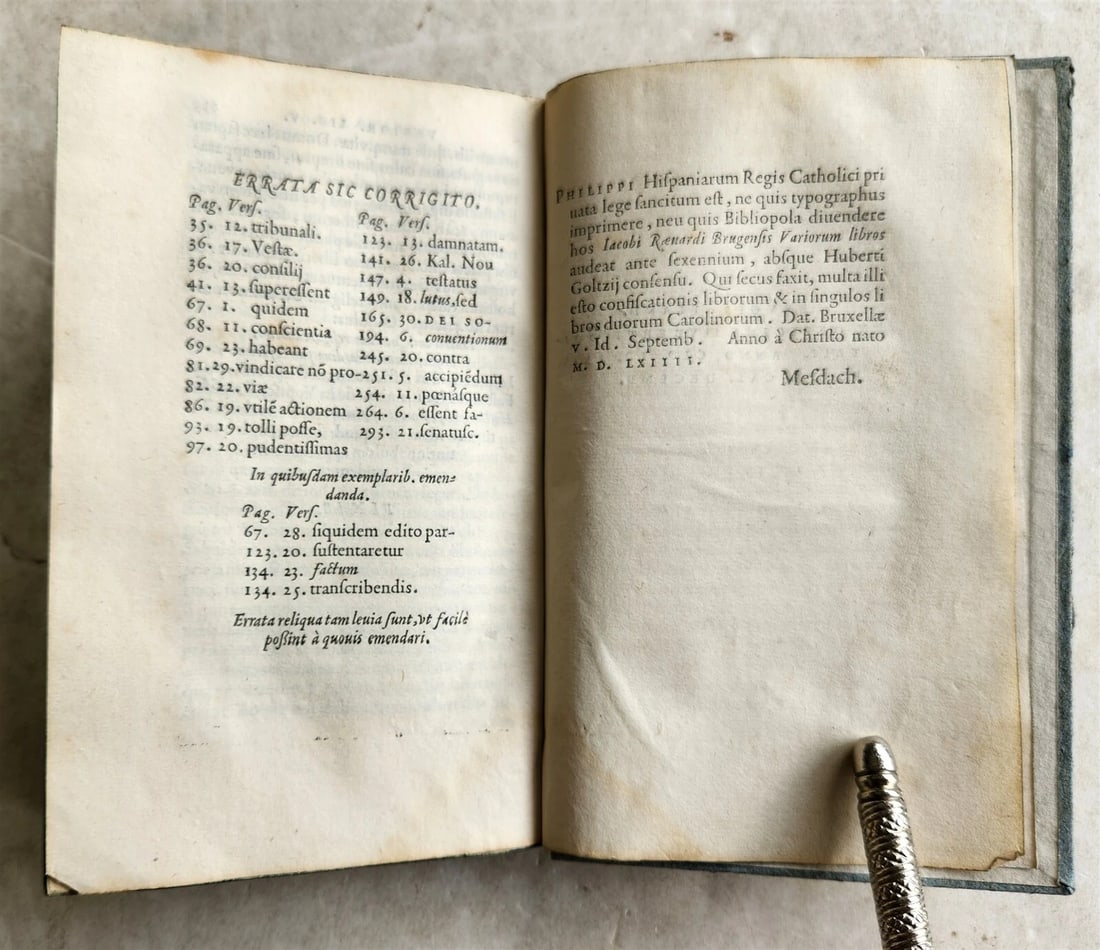 ERRATA SIC CORRIGITO.
Pag. Verſ.
35. 12. tribunali.
36. 17. Veſtæ.
36. 20. conſilij
41. 13. ſupereſſent
67. 1. quidem
68. 11. conſcientia
69. 23. habeant
81. 29. vindicare nõ pro-
82. 22. viæ
86. 19. vtilẽ actionem
93. 19. tolli poſſe,
97. 20. pudentiſſimas
Pag. Verſ.
123. 13. damnatam.
141. 26. Kal. Nou
147. 4. teſtatus
149. 18. lutus.ſed
165. 30. DEI SO-
194. 6. conuentionum
245. 20. contra
251. 5. accipiẽdum
254. 11. pœnáſque
264. 6. eſſent fa-
293. 21. ſenatuſc.
In quibuſdam exemplarib. emen-
danda.
Pag. Verſ.
67. 28. ſiquidem edito par-
123. 20. ſuſtentaretur
134. 23. factum
134. 25. tranſcribendis.
Errata reliqua tam leuia ſunt, vt facilè
poßint à quouis emendari.
PHILIPPI Hiſpaniarum Regis Catholici pri
uata lege ſancitum eſt, ne quis typographus
imprimere, neu quis Bibliopola diuendere
hos Iacobi Ræuardi Brugenſis Variorum libros
audeat ante ſexennium, abſque Huberti
Goltzij conſenſu. Qui ſecus faxit, multa illi
eſto confiſcationis librorum & in ſingulos li
bros duorum Carolinorum. Dat. Bruxellæ
v. Id. Septemb. Anno à Chriſto nato
M. D. LXIIII.
Meſdach.